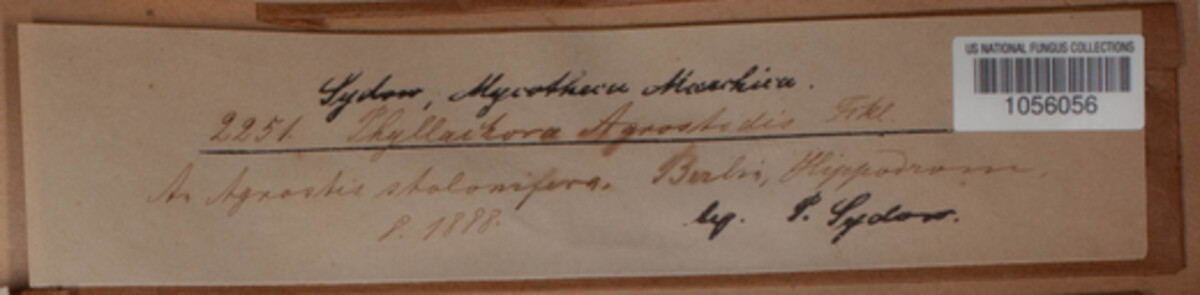 Sydow, Mycotheca Marchica.
2251. Phyllachora Agrostidis Fckl.
A. Agrostis stolonifera. Berlin, Hippodrom.
8. 1888.
leg. P. Sydow.
US NATIONAL FUNGUS COLLECTIONS
1056056